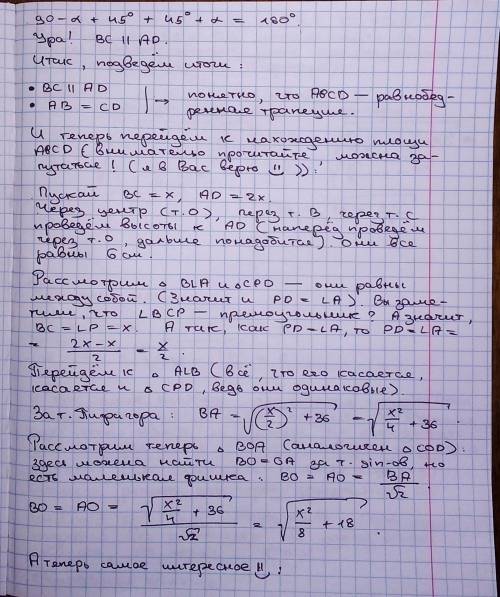 90 - α + 45° + 45° + α = 180°.
Ура! BC || AD.
Итак, подведём итоги:
• BC || AD
• AB = CD → понятно, что ABCD — равнобед-
ренная трапеция.
И теперь перейдём к нахождению площи
ABCD (внимательно прочитайте, можна за-
путаться! (я в Вас верю !!)):
Пускай BC = x, AD = 2x.
Через центр (т.O), через т. B, через т. C
проведём высоты к AD (наперёд проведём
через т.O, дальше понадобится). Они все
равны 6 см.
Рассмотрим △ BLA и △CPD — они равны
между собой. (Значит и PD = LA). Вы заме-
тили, что LBCP — прямоугольник? А значит,
BC = LP = x. А так, как PD = LA, то PD = LA =
= (2x - x)/2 = x/2.
Перейдём к △ ALB (всё, что его касается,
касается и △ CPD, ведь они одинаковые).
За т. Пифагора: BA = √((x/2)² + 36) = √(x²/4 + 36).
Рассмотрим теперь △ BOA (аналогичен △ COD):
здесь можена найти BO = OA за т. sin-ов, но
есть маленькая фишка: BO = AO = BA/√2.
BO = AO = √(x²/4 + 36)/√2 = √(x²/8 + 18).
А теперь самое интересное !! :